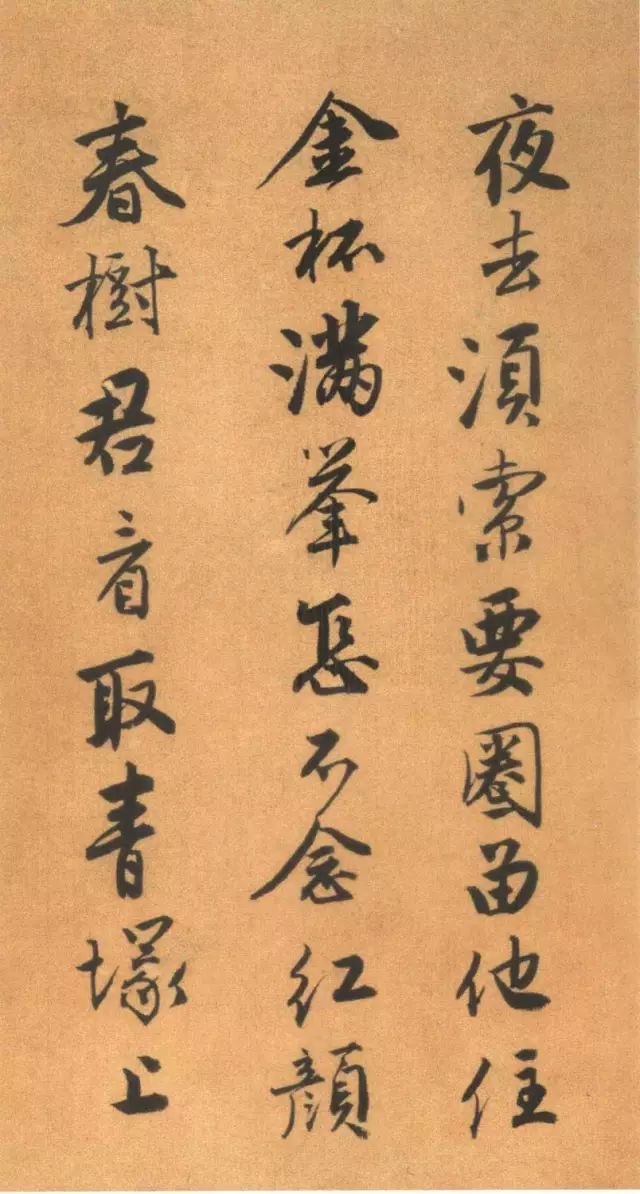 夜去須索要圈留他住
金杯滿举怎不念红顏
春樹君看取青塚上